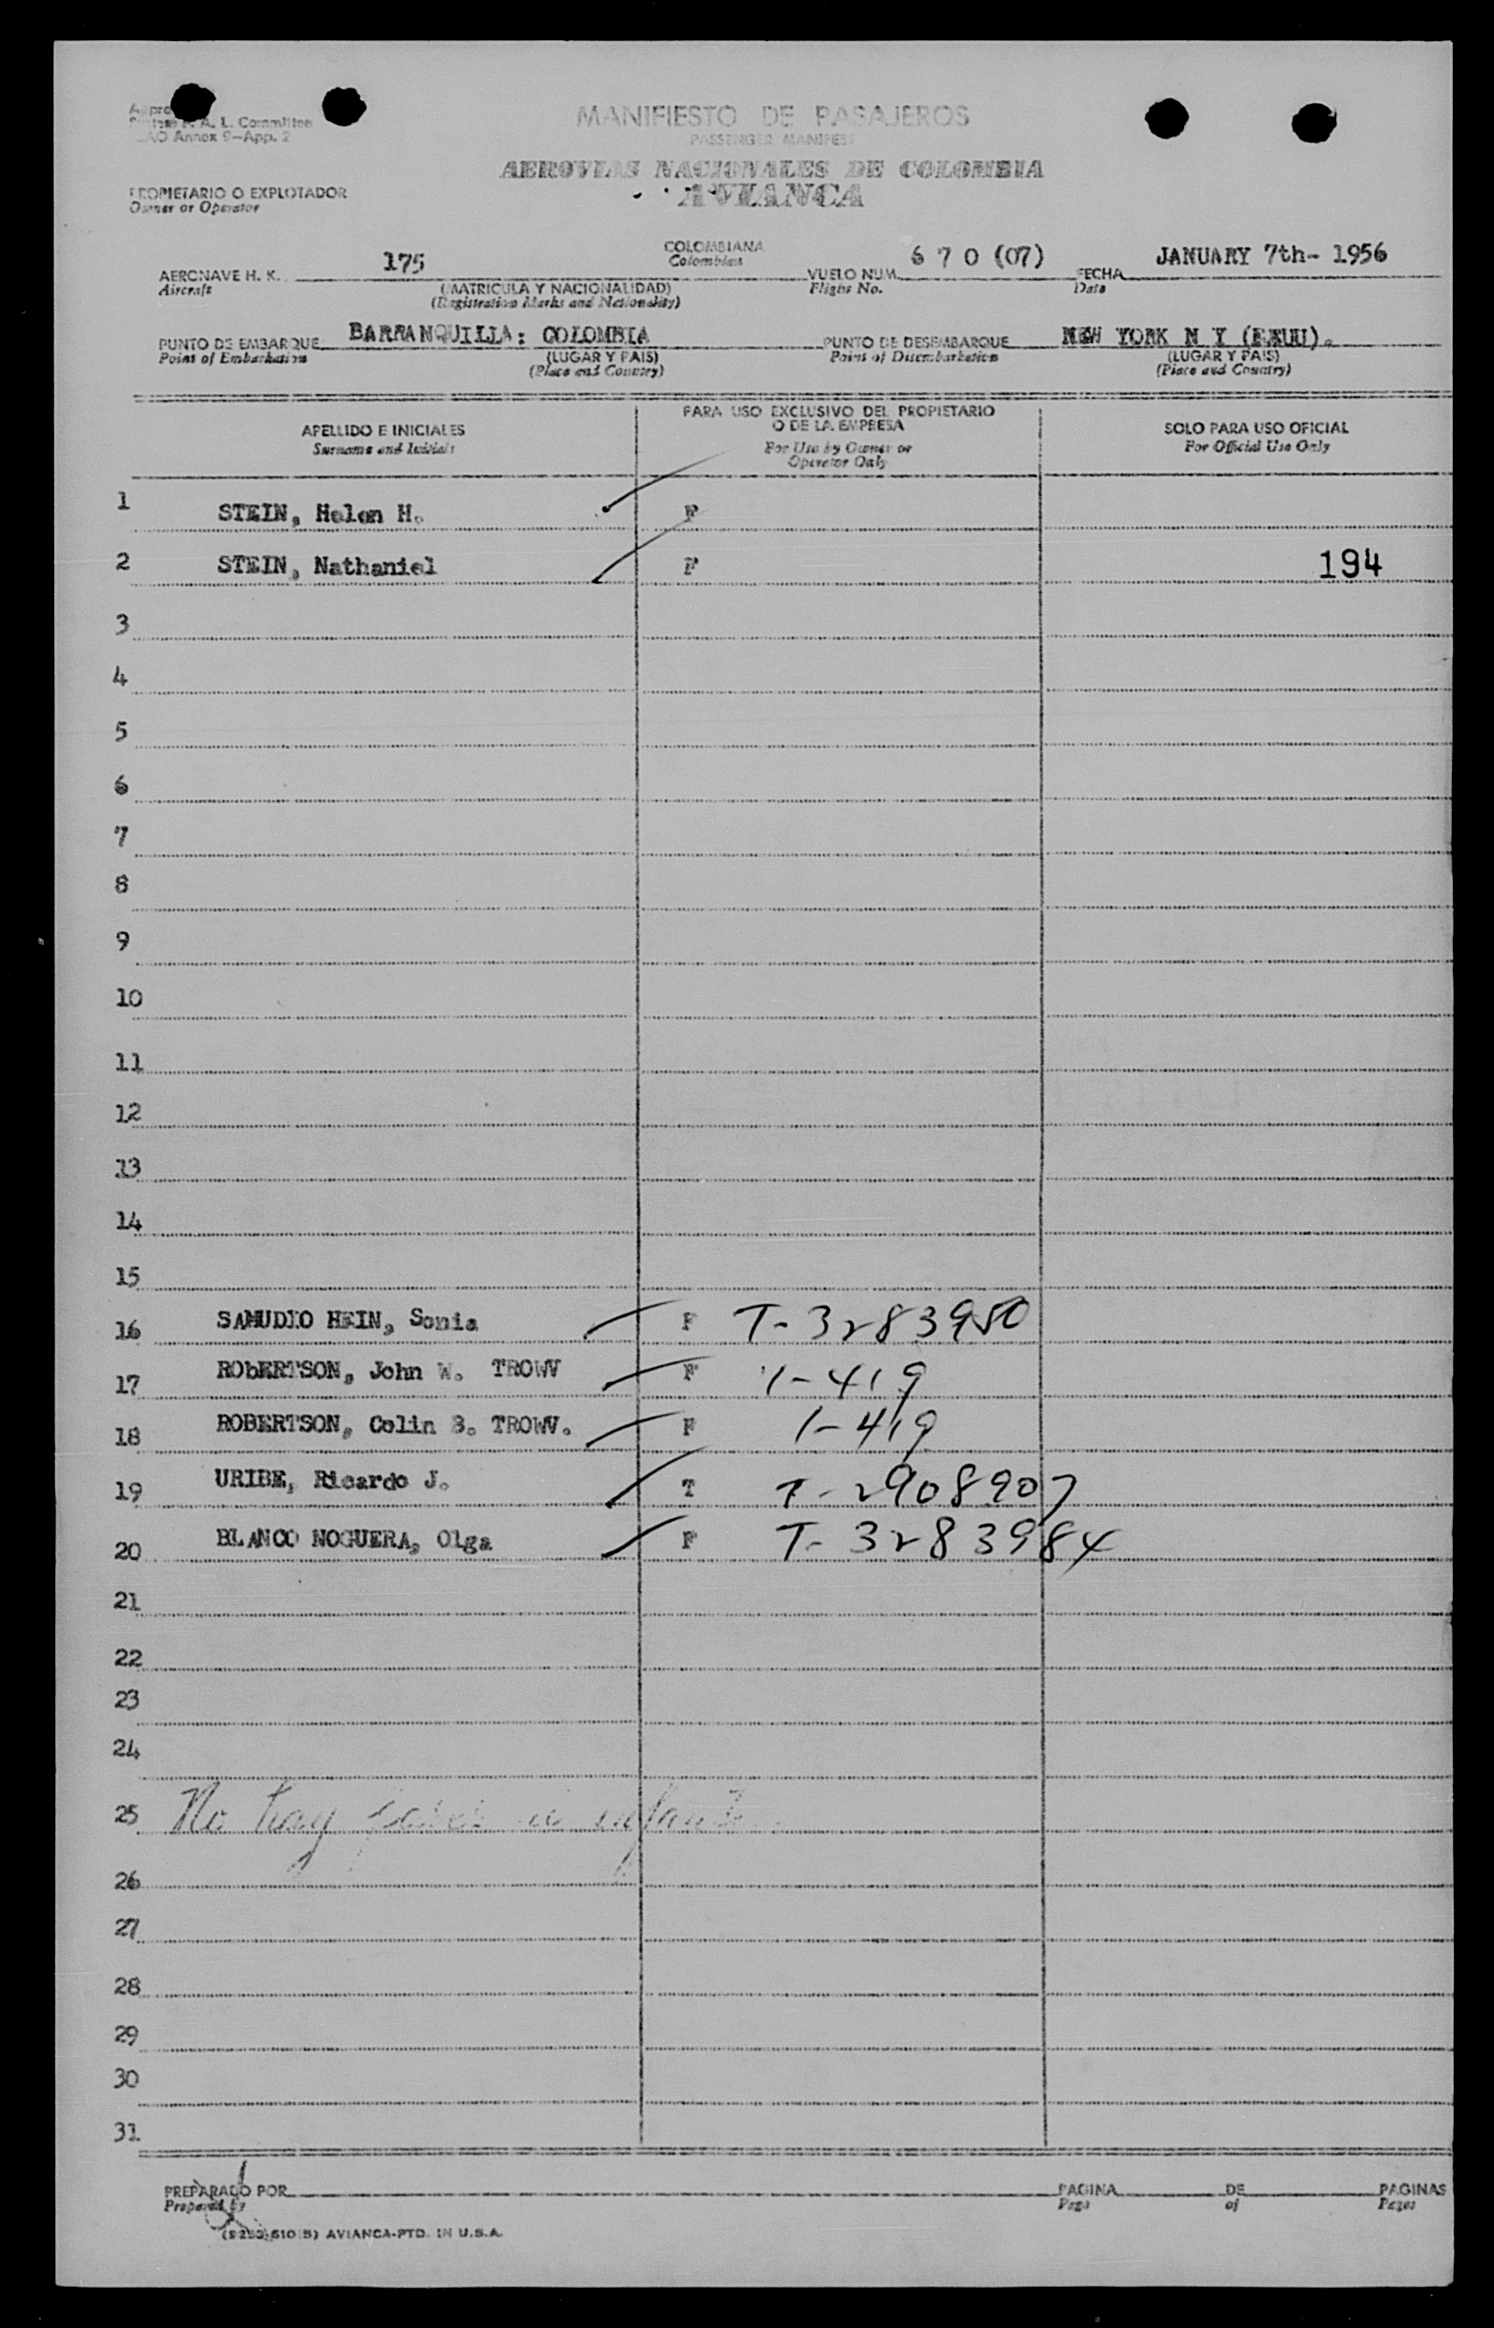 A. L. Committee
Annex 9-App. 2
MANIFIESTO DE PASAJEROS
PASSENGER MANIFEST
AEROVIAS NACIONALES DE COLOMBIA
AVIANCA
PROPIETARIO O EXPLOTADOR
Owner or Operator
AERONAVE H. K. 175 COLOMBIANA VUELO NUM. 6 7 0 (07) FECHA JANUARY 7th- 1956
Aircraft (MATRICULA Y NACIONALIDAD) Colombian Flight No. Date
(Registration Marks and Nationality)
PUNTO DE EMBARQUE BARRANQUILLA: COLOMBIA PUNTO DE DESEMBARQUE NEW YORK N Y (EEUU).
Point of Embarkation (LUGAR Y PAIS) Point of Disembarkation (LUGAR Y PAIS)
(Place and Country) (Place and Country)
APELLIDO E INICIALES PARA USO EXCLUSIVO DEL PROPIETARIO SOLO PARA USO OFICIAL
Surname and Initials O DE LA EMPRESA For Official Use Only
For Use by Owner or
Operator Only
1 STEIN, Helen H. F
2 STEIN, Nathaniel F 194
3
4
5
6
7
8
9
10
11
12
13
14
15
16 SAMUDIO HEIN, Sonia F T-3283950
17 RObERTSON, John W. TROWV F 1-419
18 ROBERTSON, Colin B. TROWV. F 1-419
19 URIBE, Ricardo J. T T-2908907
20 BLANCO NOGUERA, Olga F T-3283984
21
22
23
24
25 No hay
26
27
28
29
30
31
PREPARADO POR PAGINA DE PAGINAS
Prepared by Page of Pages
AVIANCA-PTD. IN U.S.A.